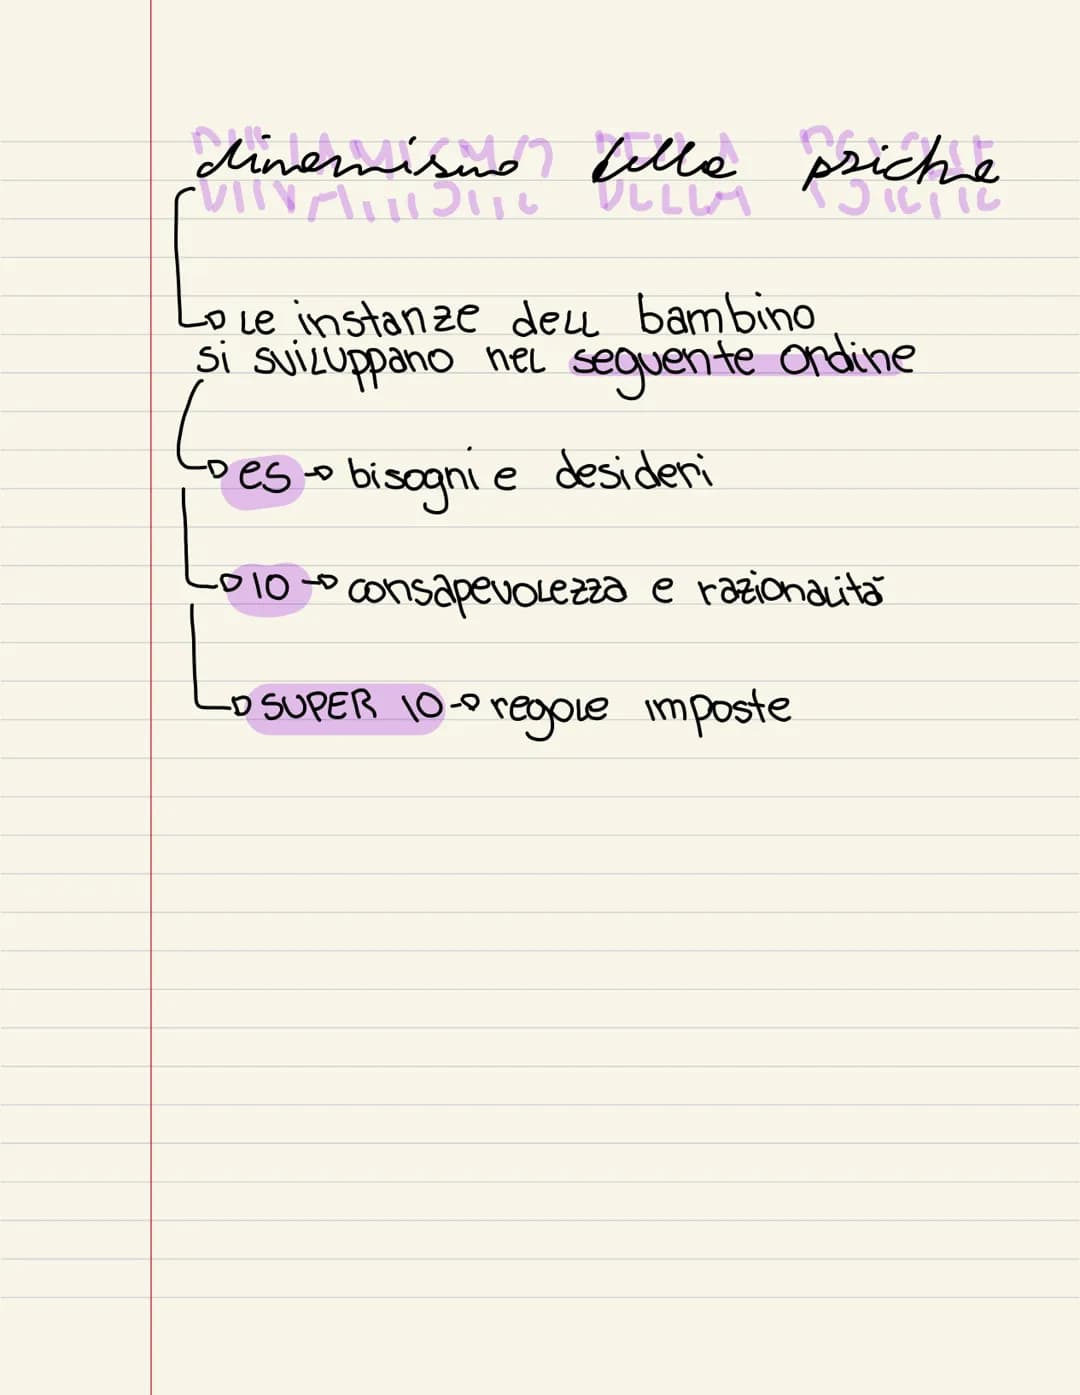 dinamismo della psiche
Le instanze dell bambino
si sviluppano nel seguente ordine
es → bisogni e desideri
IO → consapevolezza e razionalità
SUPER IO → regole imposte